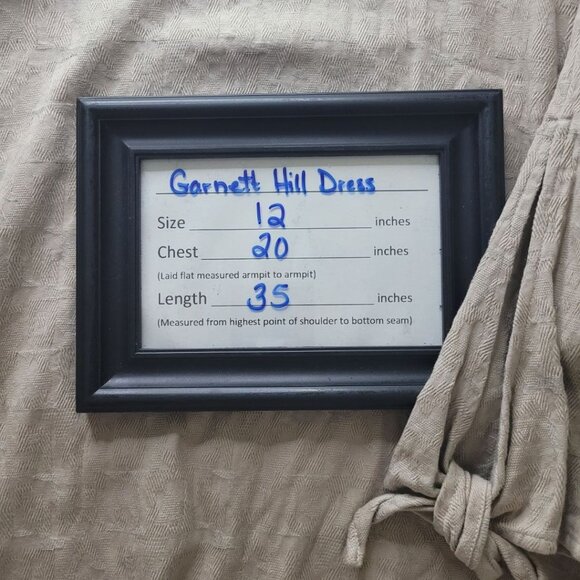 Garnett Hill Dress
Size 12 inches
Chest 20 inches
(Laid flat measured armpit to armpit)
Length 35 inches
(Measured from highest point of shoulder to bottom seam)